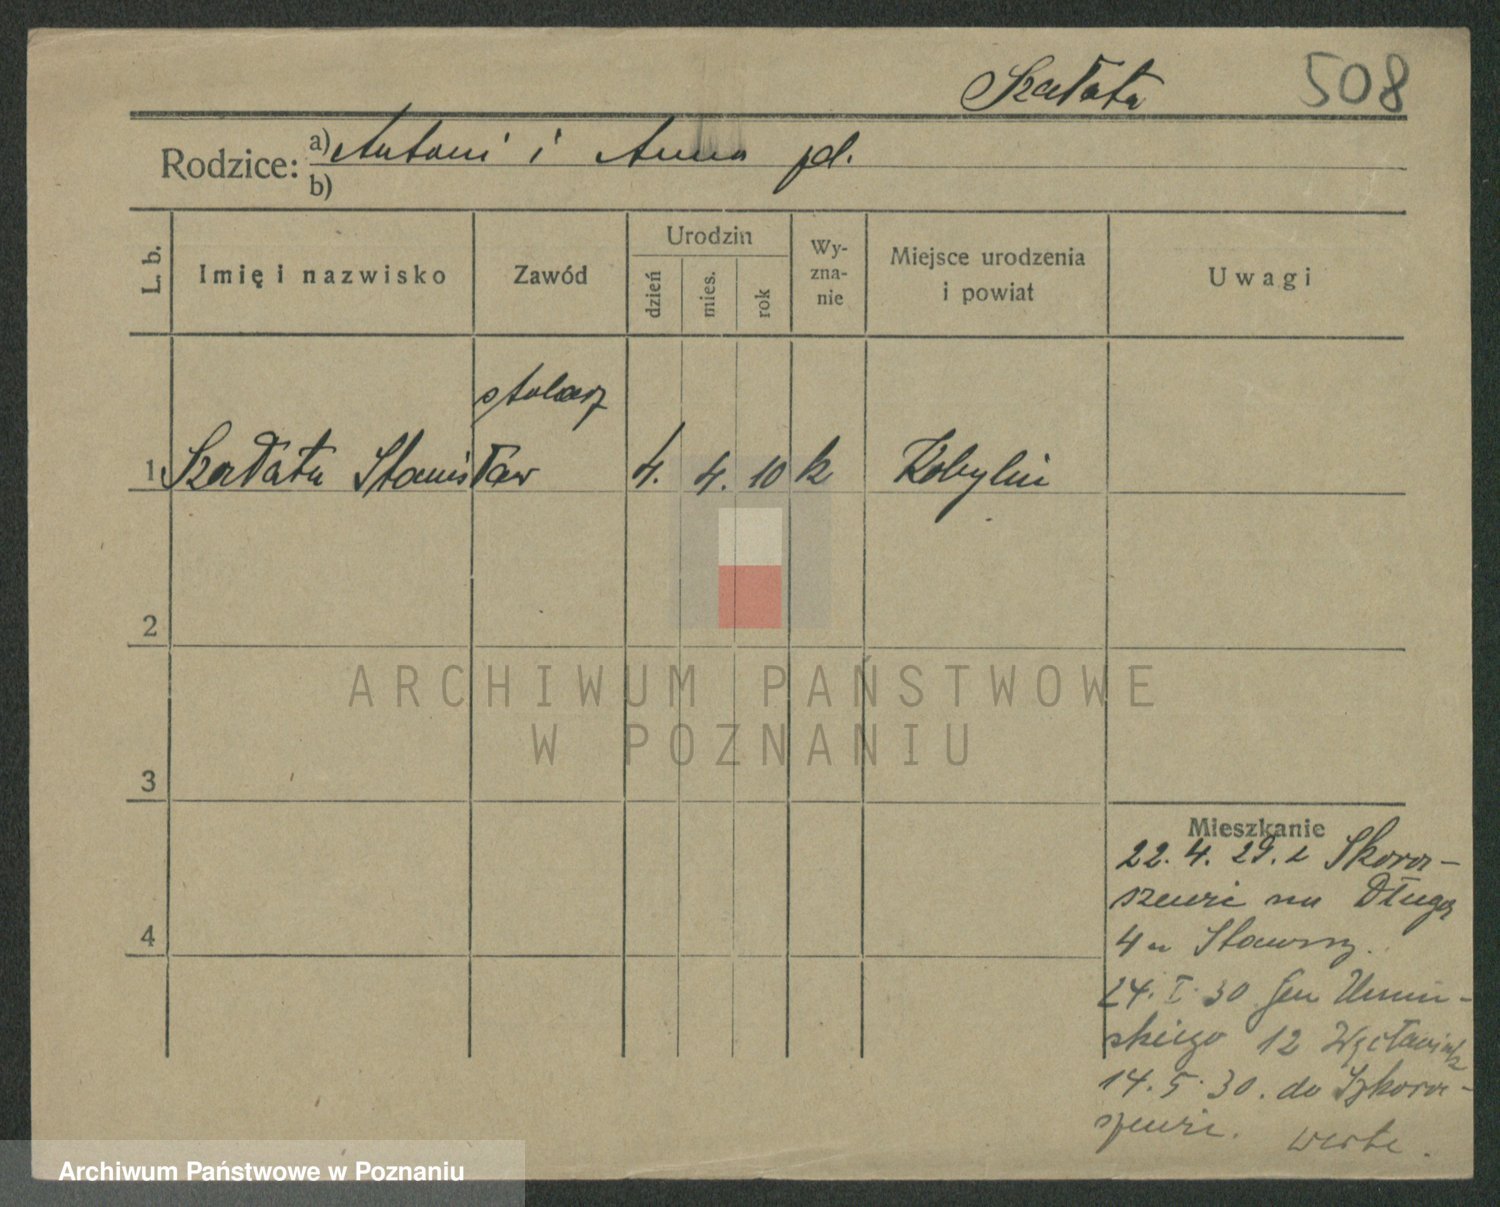 Szałata
508
Rodzice: a) Antoni i Anna pd.
b)
L. b.
Imię i nazwisko
Zawód
Urodzin
dzień
mies.
rok
Wy-
zna-
nie
Miejsce urodzenia
i powiat
Uwagi
stolarz
1 Szałata Stanisław 4. 4. 10 k Kobylin
2
3
4
Mieszkanie
22. 4. 29. z Skoro-
szewic na Długą
4 u
24. I. 30 Gen Umiń-
skiego 12
14. 5. 30. do
szewic. verte.
ARCHIWUM PAŃSTWOWE
W POZNANIU
Archiwum Państwowe w Poznaniu